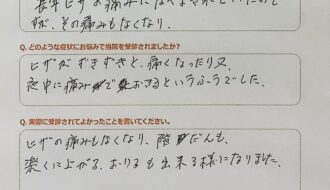 長年ヒザの痛みに
すが、その痛みもなくなり、
Q. どのような症状にお悩みで当院を受診されましたか？
ヒザがずきずきと、痛くなったり又、
夜中に痛みでおきるというふうでした。
Q. 実際に受診されてよかったことを書いてください。
ヒザの痛みもなくなり、階だんも、
楽くに上がる、おりるも出来る様になりました。